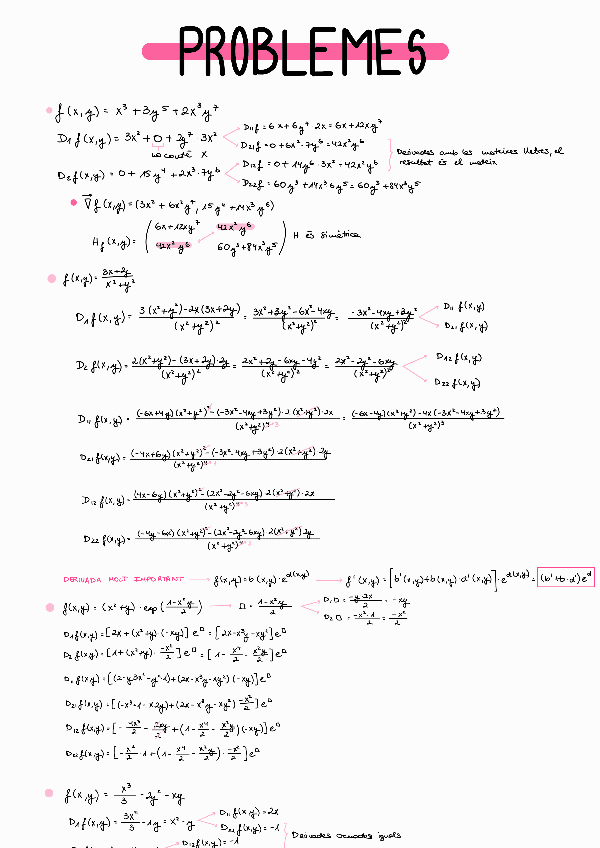 PROBLEMES
f(x,y) = x³ + 3y⁵ + 2x³y⁷
D₁₁f = 6x + 6y⁷·2x = 6x + 12xy⁷
D₁f(x,y) = 3x² + 0 + 2y⁷ 3x²
D₂₁f = 0 + 6x²·7y⁶ = 42x²y⁶
no conté x
Derivades amb les mateixes lletres, el
resultat és el mateix
D₁₂f = 0 + 14y⁶·3x² = 42x²y⁶
D₂f(x,y) = 0 + 15y⁴ + 2x³·7y⁶
D₂₂f = 60y³ + 14x³6y⁵ = 60y³ + 84x³y⁵
∇f(x,y) = (3x² + 6x²y⁷, 15y⁴ + 14x³y⁶)
H f(x,y) = ( 6x + 12xy⁷ 42x²y⁶
42x²y⁶ 60y³ + 84x³y⁵ ) H és simètrica
f(x,y) = (3x+2y)/(x²+y²)
D₁f(x,y) = (3(x²+y²) - 2x(3x+2y))/(x²+y²)² = (3x²+3y²-6x²-4xy)/(x²+y²)² = (-3x²-4xy+3y²)/(x²+y²)²
D₁₁ f(x,y)
D₂₁ f(x,y)
D₂f(x,y) = (2(x²+y²) - (3x+2y)·2y)/(x²+y²)² = (2x²+2y²-6xy-4y²)/(x²+y²)² = (2x²-2y²-6xy)/(x²+y²)²
D₁₂ f(x,y)
D₂₂ f(x,y)
D₁₁ f(x,y) = ((-6x+4y)(x²+y²)²-(-3x²-4xy+3y²)·2(x²+y²)·2x)/(x²+y²)⁴⁼³ = ((-6x-4y)(x²+y²)-4x(-3x²-4xy+3y²))/(x²+y²)³
D₂₁ f(x,y) = ((-4x+6y)(x²+y²)²-(-3x²-4xy+3y²)·2(x²+y²)·2y)/(x²+y²)⁴⁼³
D₁₂ f(x,y) = ((4x-6y)(x²+y²)²-(2x²-2y²-6xy)·2(x²+y²)·2x)/(x²+y²)⁴⁼³
D₂₂ f(x,y) = ((-4y-6x)(x²+y²)²-(2x²-2y²-6xy)·2(x²+y²)2y)/(x²+y²)⁴⁼³
DERIVADA MOLT IMPORTANT → f(x,y) = b(x,y)·e^d(x,y) → f'(x,y) = [b'(x,y)+b(x,y)·d'(x,y)]·e^d(x,y) = (b'+b·d')e^d
f(x,y) = (x²+y)·exp((1-x²y)/2) → □ = (1-x²y)/2
D₁□ = (-y·2x)/2 = -xy
D₂□ = (-x²·1)/2 = -x²/2
D₁f(x,y) = [2x+(x²+y)·(-xy)]e^□ = [2x-x³y-xy²]e^□
D₂f(x,y) = [1+(x²+y)·-x²/2]e^□ = [1-x⁴/2-x²y/2]e^□
D₁₁f(x,y) = [(2-y3x²-y²·1)+(2x-x³y-xy²)(-xy)]e^□
D₂₁f(x,y) = [(-x³·1-x2y)+(2x-x³y-xy²)-x²/2]e^□
D₁₂f(x,y) = [-4x³/2-2xy/2+(1-x⁴/2-x²y/2)(-xy)]e^□
D₂₂f(x,y) = [-x²/2·1+(1-x⁴/2-x²y/2)·-x²/2]e^□
f(x,y) = x³/3 - 2y² - xy
D₁₁f(x,y) = 2x
D₁f(x,y) = 3x²/3 - 1y = x²-y
D₂₁f(x,y) = -1
Derivades creuades iguals
D₁₂f(x,y) = -1